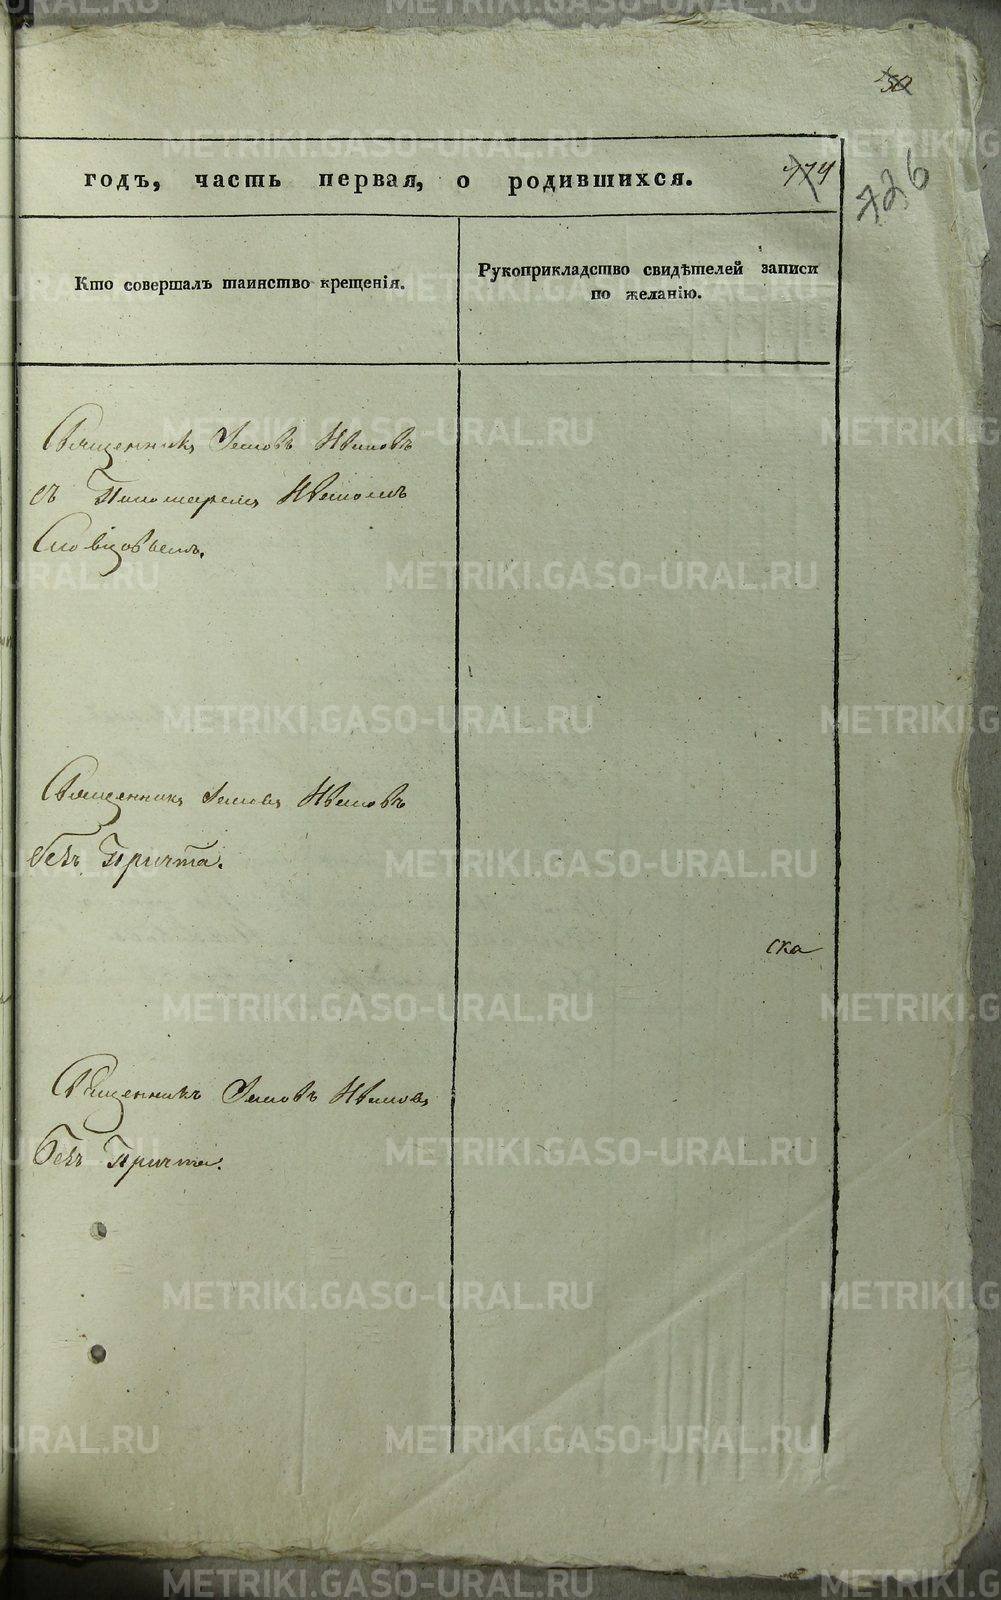 METRIKI.GASO-URAL.RU
50
годъ, часть первая, о родившихся.
774
726
Кто совершалъ таинство крещенія.
Рукоприкладство свидѣтелей записи
по желанію.
Священникъ Іаковъ Ивановъ
съ Пономаремъ Иваномъ
Словцовымъ.
Священникъ Іаковъ Ивановъ
безъ Причта.
ска
Священникъ Іаковъ Ивановъ
безъ Причта.